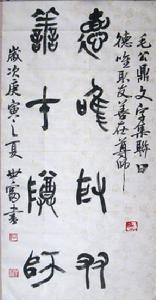 毛公鼎文字集聯曰
德唯取友善在尊師
悳唯取友
善才尊師
歲次庚寅之夏 世富書